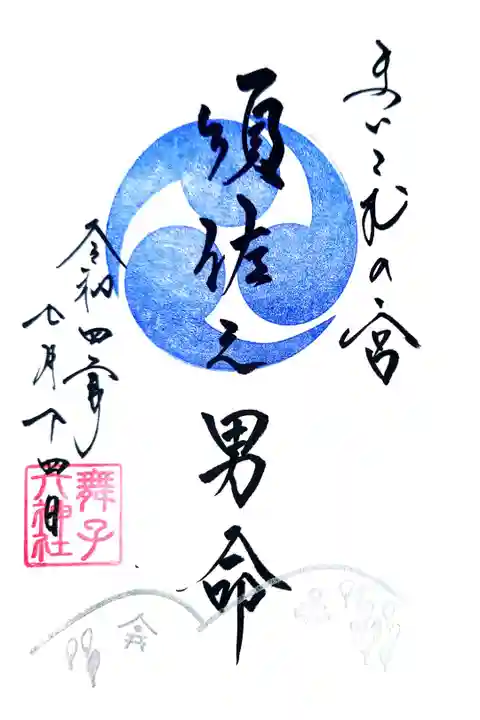 まいこ六の宮
須佐之男命
令和四年
七月十四日
舞子
六神社